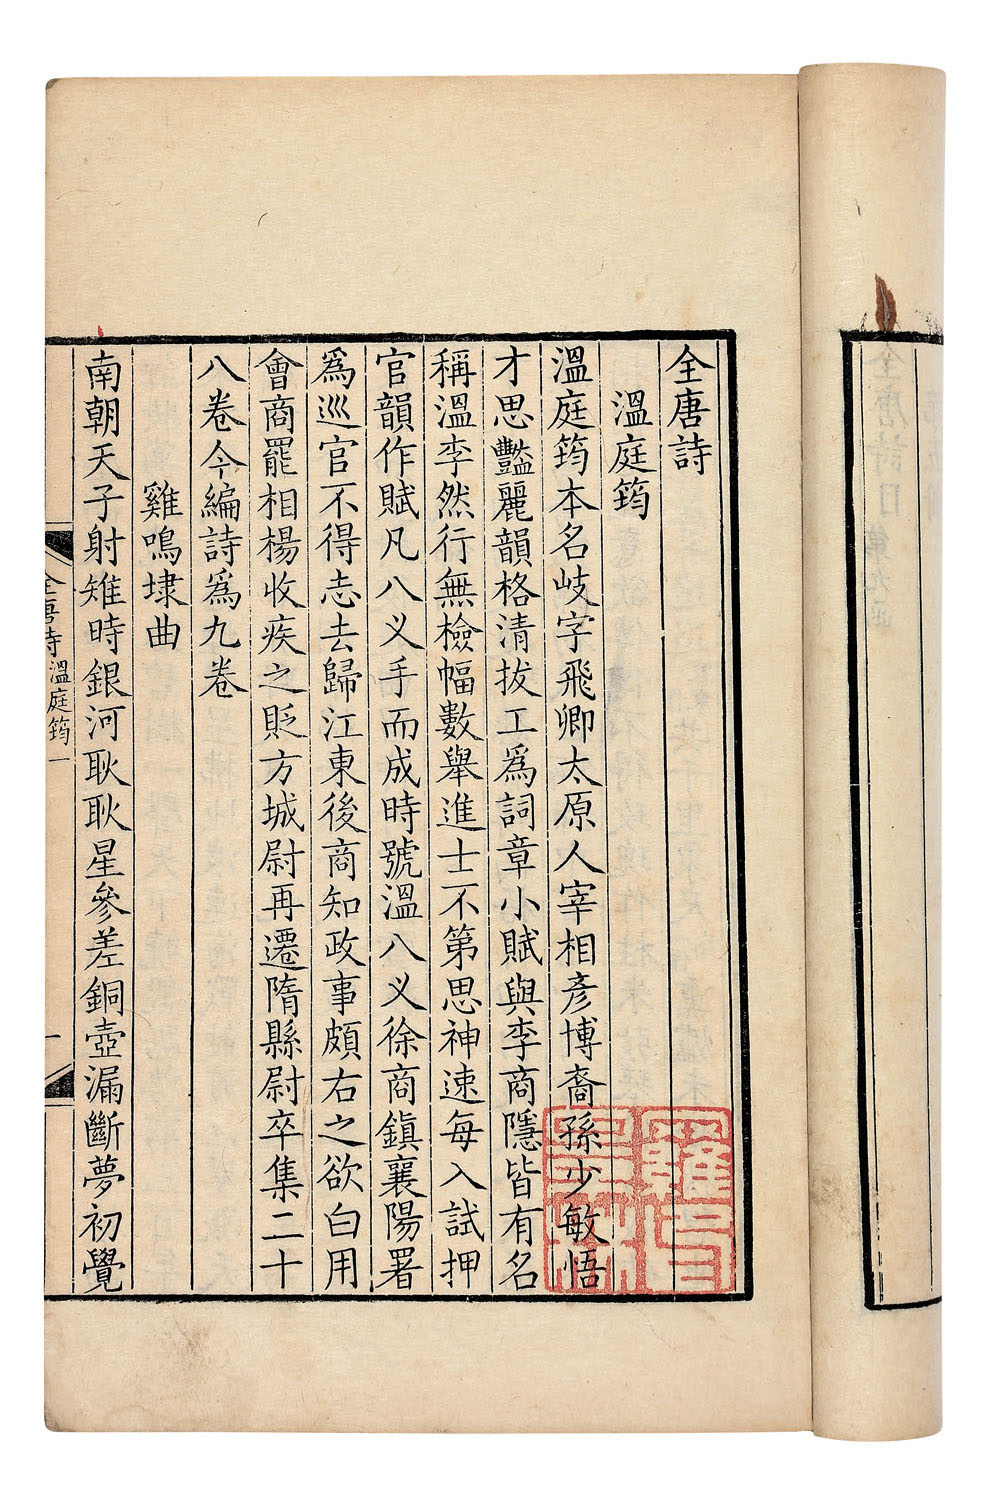 全唐詩
溫庭筠
溫庭筠本名岐字飛卿太原人宰相彥博裔孫少敏悟
才思豔麗韻格清拔工爲詞章小賦與李商隱皆有名
稱溫李然行無檢幅數舉進士不第思神速每入試押
官韻作賦凡八叉手而成時號溫八叉徐商鎮襄陽署
爲巡官不得志去歸江東後商知政事頗右之欲白用
會商罷相楊收疾之貶方城尉再遷隋縣尉卒集二十
八卷今編詩爲九卷
雞鳴埭曲
南朝天子射雉時銀河耿耿星參差銅壺漏斷夢初覺
全唐詩 溫庭筠一 一